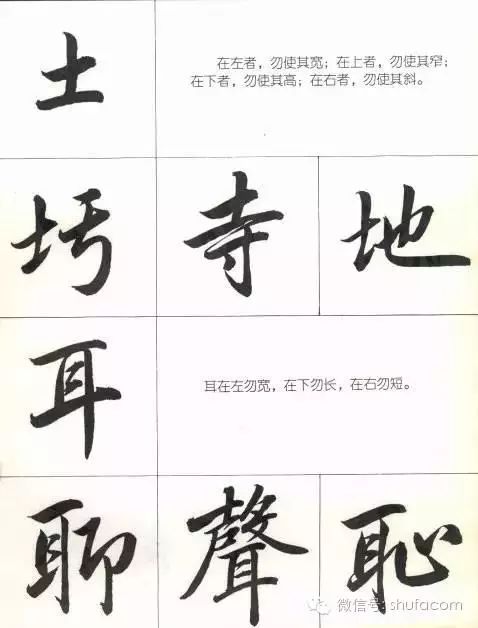 土
在左者，勿使其宽；在上者，勿使其窄；
在下者，勿使其高；在右者，勿使其斜。
圬 寺 地
耳
耳在左勿宽，在下勿长，在右勿短。
聊 聲 恥
微信号: shufacom